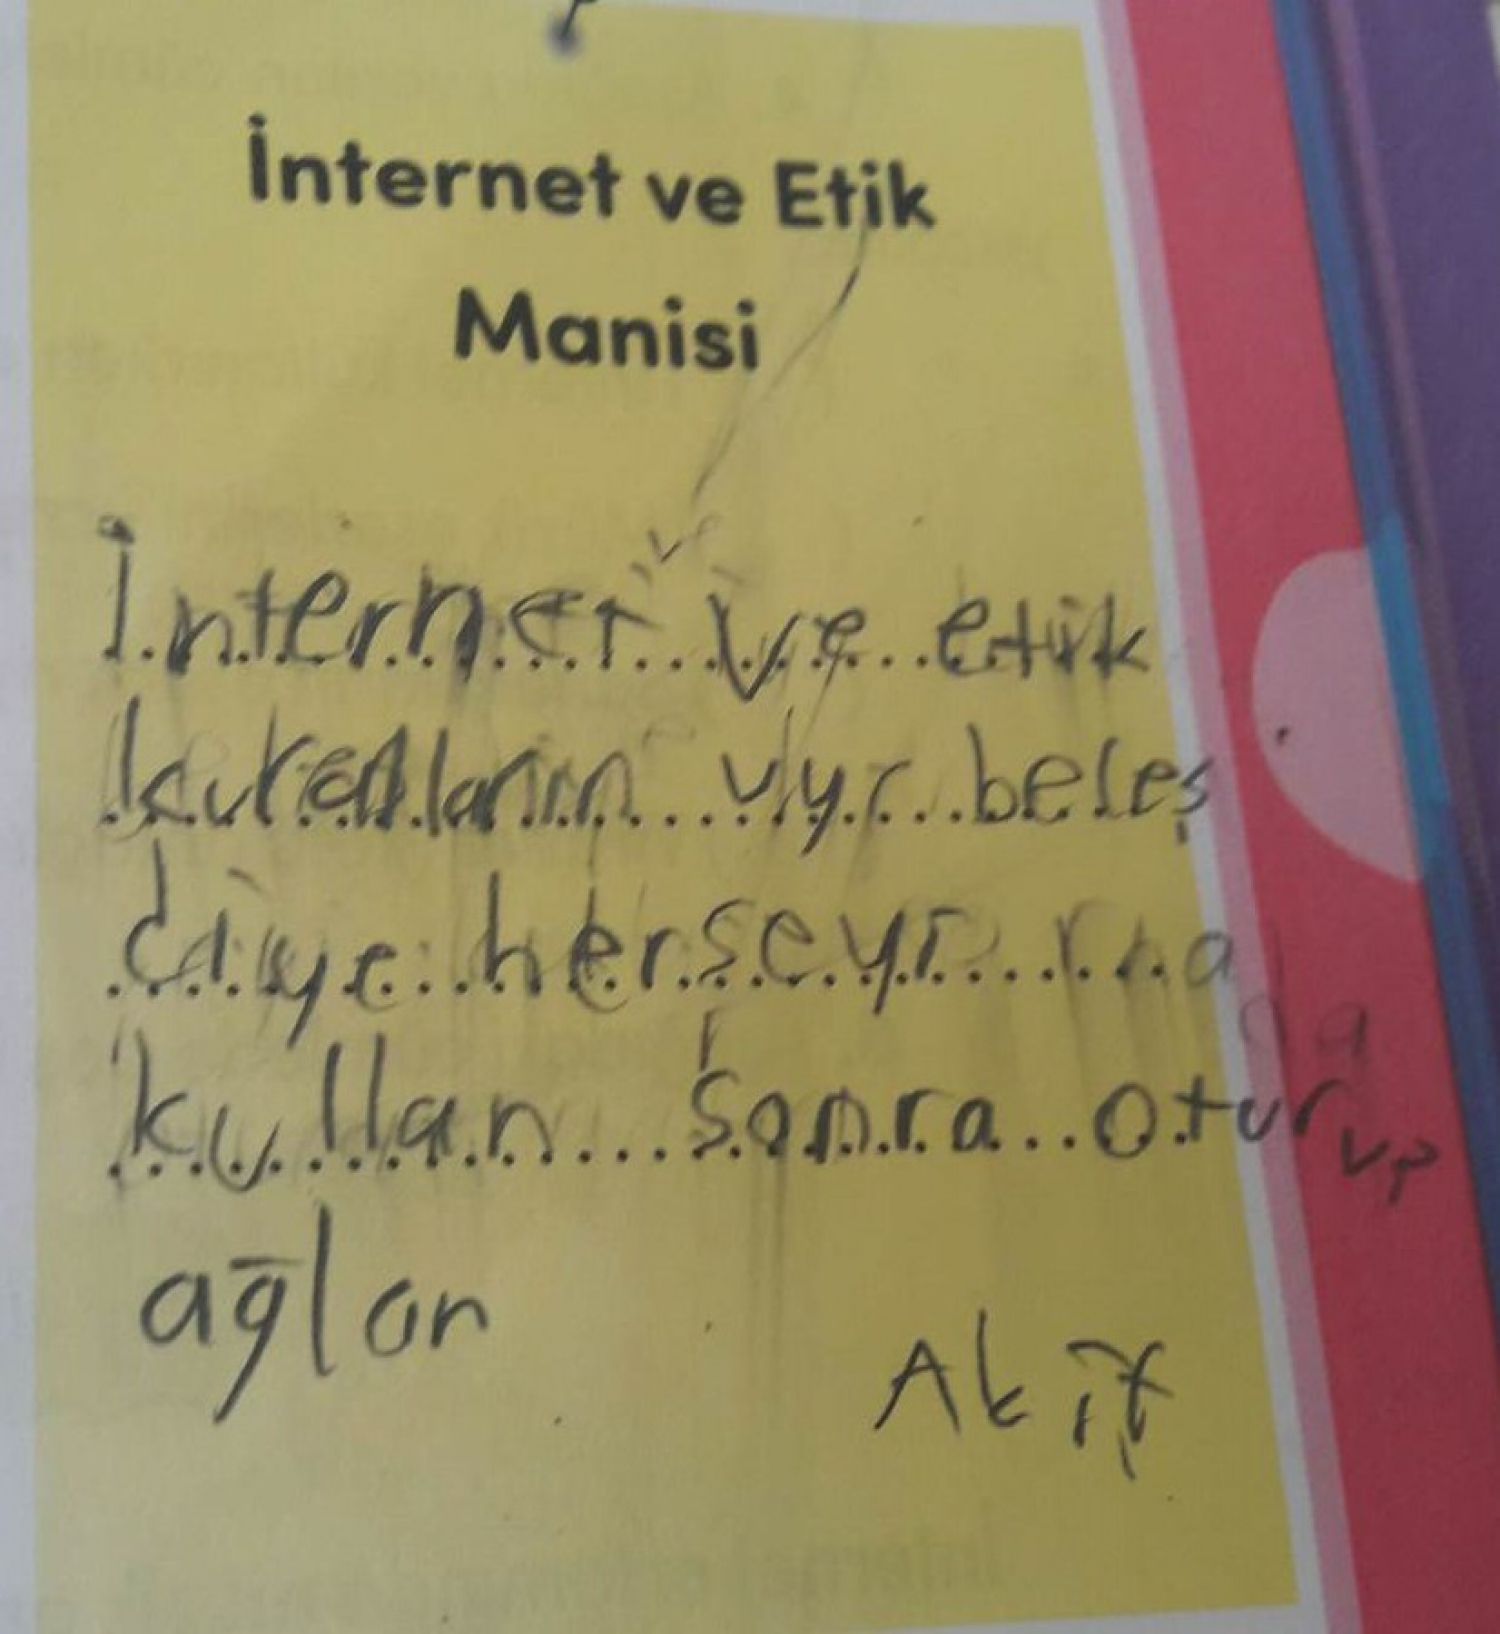 İnternet ve Etik
Manisi
İnternet ve etik
kuralların uyr beleş
diye herşeyi
kullan sonra otur ve
ağlan
Akif